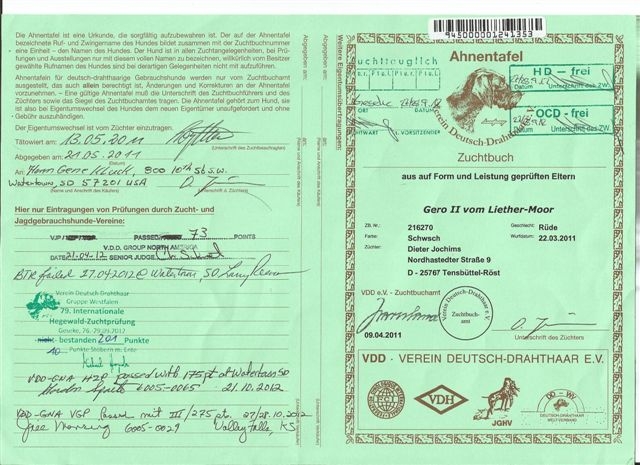 Die Ahnentafel ist eine Urkunde, die sorgfältig aufzubewahren ist. Der auf der Ahnentafel
bezeichnete Ruf- und Zwingername des Hundes bildet zusammen mit der Zuchtbuchnummer
eine Einheit – den Namen des Hundes. Der Hund ist in allen Zuchtangelegenheiten, bei Prü-
fungen und Ausstellungen nur mit diesem vollen Namen zu bezeichnen, willkürlich vom Besitzer
gewählte Rufnamen des Hundes sind bei derartigen Gelegenheiten nicht mit aufzuführen.
Ahnentafeln für deutsch-drahthaarige Gebrauchshunde werden nur vom Zuchtbuchamt
ausgestellt, das auch allein berechtigt ist, Änderungen und Korrekturen an der Ahnentafel
vorzunehmen. – Eine gültige Ahnentafel muß die Unterschriften des Zuchtbuchführers und des
Züchters sowie das Siegel des Zuchtbuchamtes tragen. Die Ahnentafel gehört zum Hund, sie
ist also bei Eigentumswechsel des Hundes dem neuen Eigentümer unaufgefordert und ohne
Gebühr auszuhändigen.
Der Eigentumswechsel ist vom Züchter einzutragen.
Tätowiert am: 13.05.2011
(Unterschrift des Zuchtbeauftragten)
Abgegeben am: 21.05.2011
An: Herrn Gene Kluck, 800 10th St S.W.
Watertown, SD 57201 USA
(Name und Anschrift des Käufers)
(Unterschrift des Züchters)
Hier nur Eintragungen von Prüfungen durch Zucht- und
Jagdgebrauchshunde-Vereine:
VJP PASSED 73 POINTS
V.D.D. GROUP NORTH AMERICA
DATE 21-04-12 SENIOR JUDGE
BTR failed 27.04.2012 @ Watertown, SD
Verein Deutsch-Drahthaar
Gruppe Westfalen
79. Internationale
Hegewald-Zuchtprüfung
Geseke, 26.-29.09.2012
nicht- bestanden 201 Punkte
10 Punkte-Stöbern m. Ente
VDD-GNA HZP passed with 175pt at Watertown SD
6005-0065 21.10.2012
VDD-GNA VGP Passed mit III/275 pts. 27/28.10.2012
6005-0029 Valley Falls, KS
Abgegeben am:
Abgegeben am:
Weitere Eigentumsübertragungen:
943000001241353
Ahnentafel
Zuchttauglich
HD – frei
Datum Unterschrift des ZW
OCD - frei
Datum Unterschrift des ZW
1. VORSITZENDER
Verein Deutsch-Drahthaar
Zuchtbuch
aus auf Form und Leistung geprüften Eltern
Gero II vom Liether-Moor
ZB. Nr.: 216270 Geschlecht: Rüde
Farbe: Schwsch Wurfdatum: 22.03.2011
Züchter: Dieter Jochims
Nordhastedter Straße 9
D - 25767 Tensbüttel-Röst
VDD e.V. - Zuchtbuchamt
Verein Deutsch-Drahthaar e.V.
Zuchtbuch-
amt
09.04.2011
Unterschrift des Züchters
VDD · VEREIN DEUTSCH-DRAHTHAAR E.V.
VDH
JGHV
DD-WV
DEUTSCH-DRAHTHAAR
WELTVERBAND